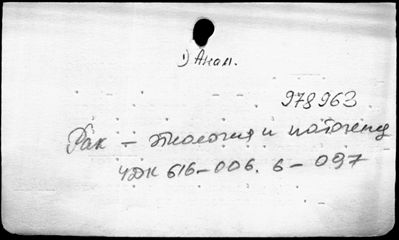 1) Анал.
978963
Рак — этиология и патогенез
УДК 616-006.6-097